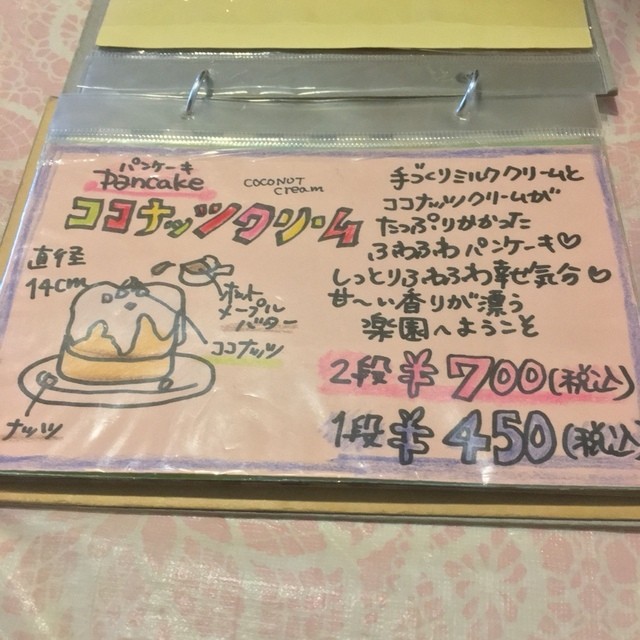 パンケーキ
Pancake
COCONUT
cream
ココナッツクリーム
直径
14cm
ホット
メープル
バター
ココナッツ
ナッツ
手づくりミルククリームと
ココナッツクリームが
たっぷりかかった
ふわふわパンケーキ♡
しっとりふわふわ幸せ気分♡
甘〜い香りが漂う
楽園へようこそ
2段 ¥700(税込)
1段 ¥450(税込)